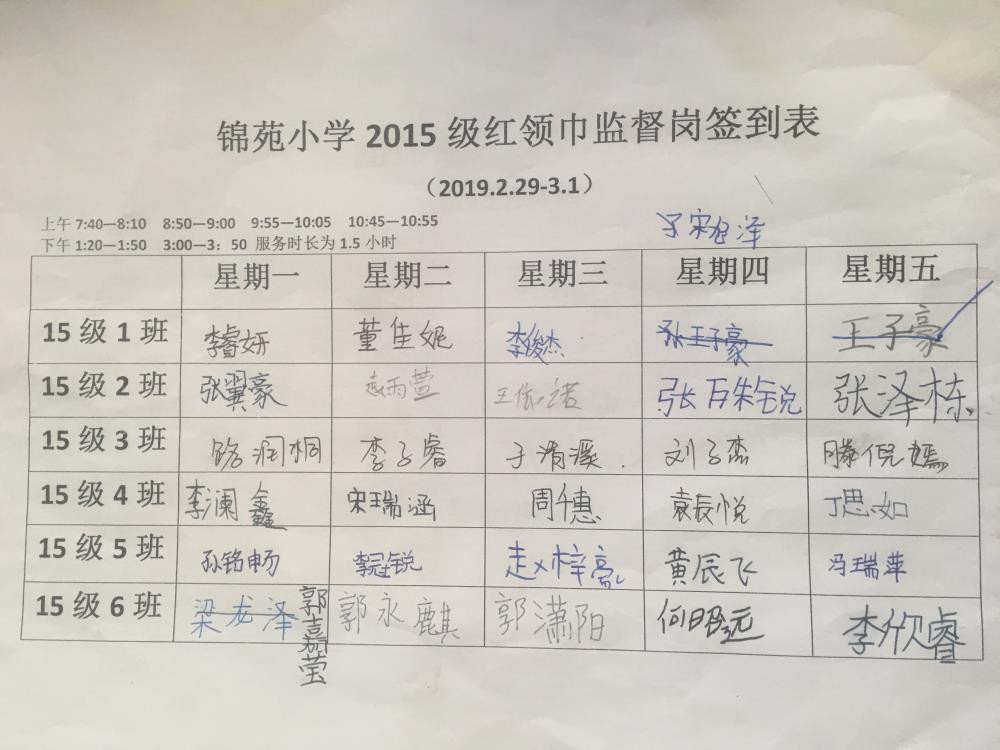 锦苑小学 2015 级红领巾监督岗签到表
（2019.2.29-3.1）
上午 7:40—8:10 8:50—9:00 9:55—10:05 10:45—10:55
下午 1:20—1:50 3:00—3：50 服务时长为 1.5 小时
星期一 星期二 星期三 星期四 星期五
15 级 1 班 李睿妍 董佳妮 李俊杰 王子豪 王子豪
15 级 2 班 张翼豪 王依诺 张百朱锐 张泽栋
15 级 3 班 路润桐 李子睿 于清溪 刘子杰 滕倪嫣
15 级 4 班 李澜鑫 宋瑞涵 周千惠 袁辰悦 丁思如
15 级 5 班 孙铭畅 李冠锐 赵梓亮 黄辰飞 冯瑞萍
15 级 6 班 梁龙泽 郭嘉莹 郭永麒 郭潇阳 何昭远 李欣睿